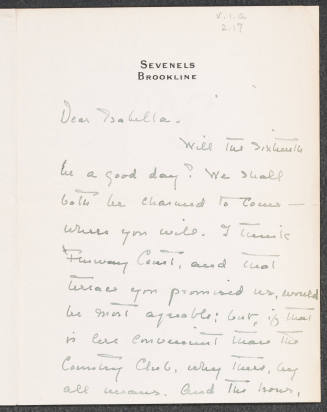 V.I.a
2.17
SEVENELS
BROOKLINE
Dear Isabella.
Will the Sixteenth
be a good day? We shall
both be charmed to come —
where you will. I think
Fenway Court, and that
terrace you promised us, would
be most agreeable; but, if that
is less convenient than the
Country Club, why there, by
all means. And the hour,